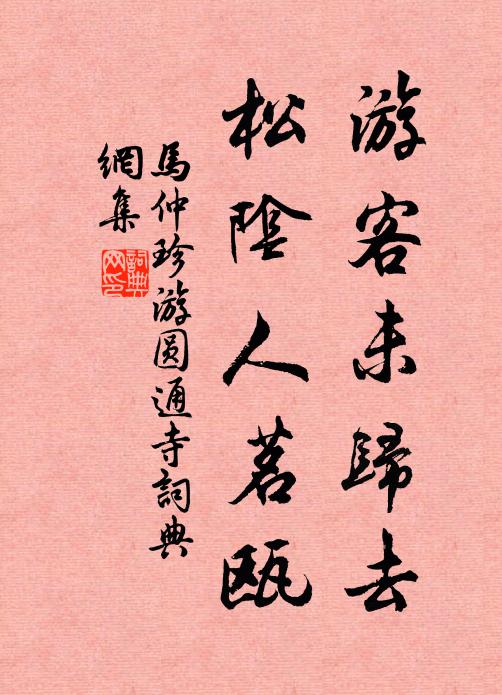 游客未歸去
松陰人茗甌
馬仲珍游圓通寺詞典
網集
詞典
网印